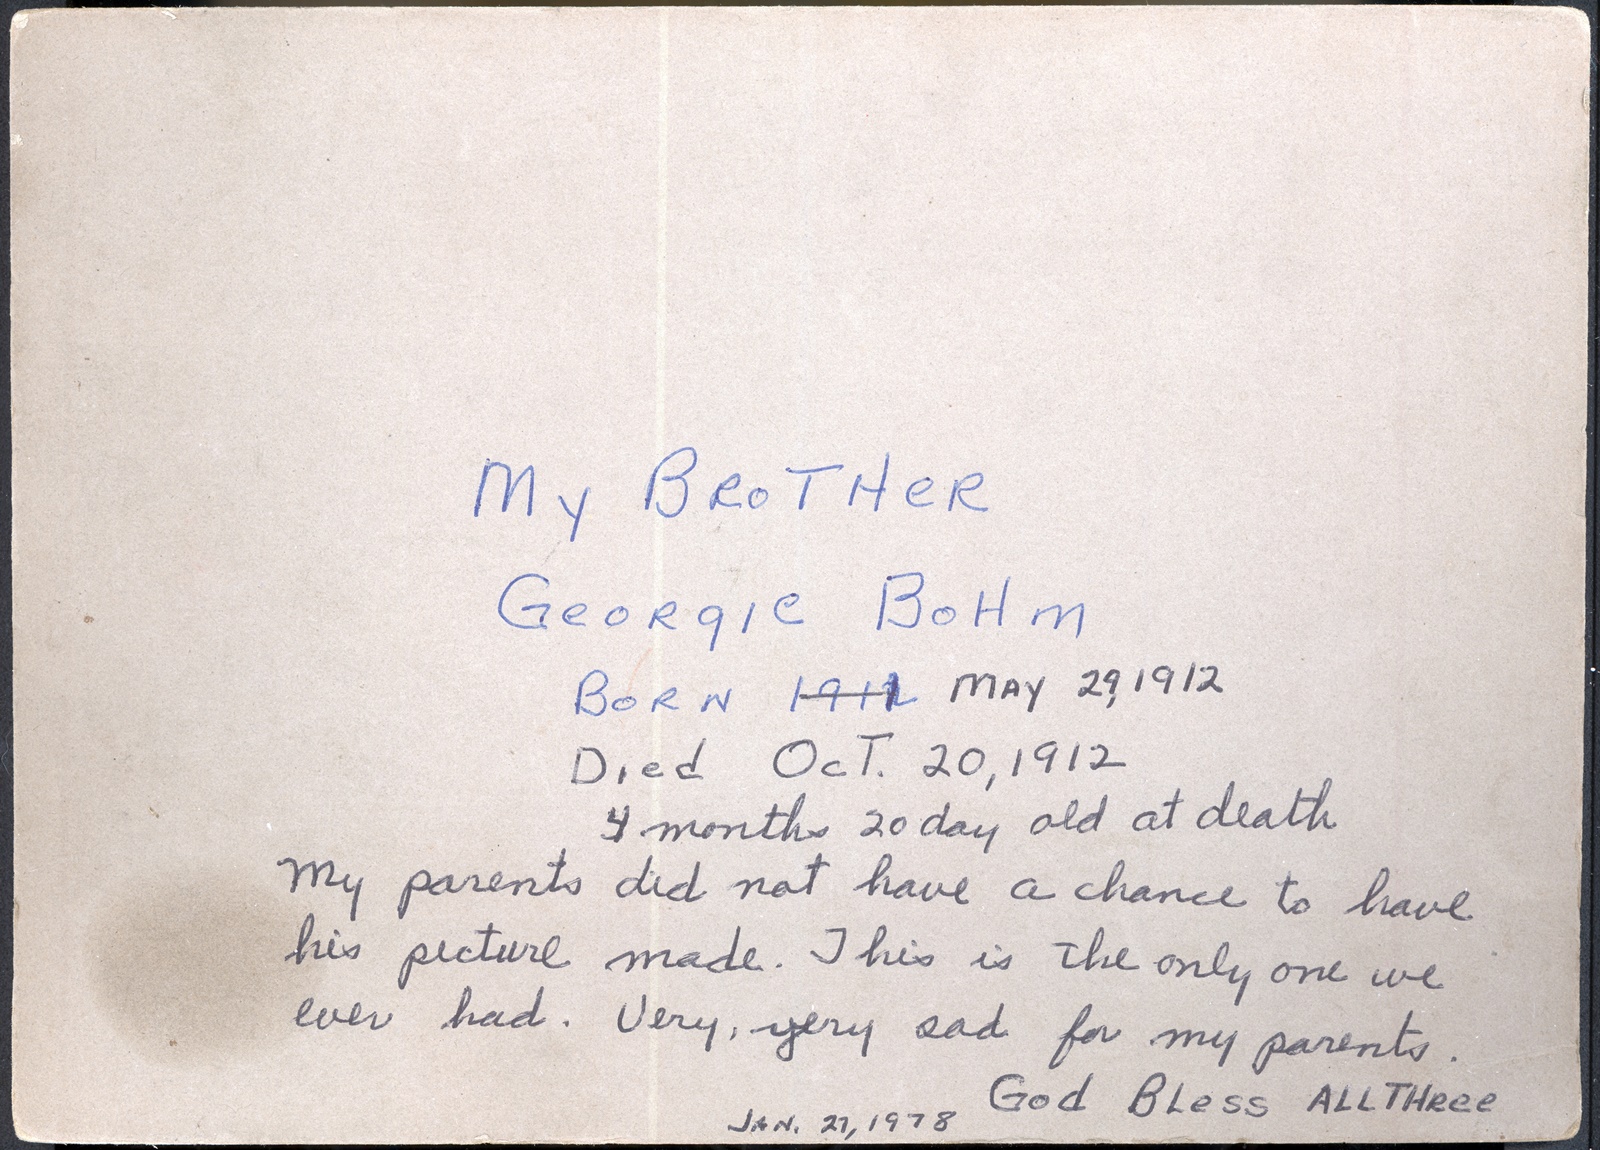 My BRoTHeR
GeoRgie BoHm
BoRN 1912 MAY 29, 1912
Died OcT. 20, 1912
4 months 20 day old at death
My parents did not have a chance to have
his picture made. This is the only one we
ever had. Very, very sad for my parents.
God BLess ALL THRee
JAN. 27, 1978